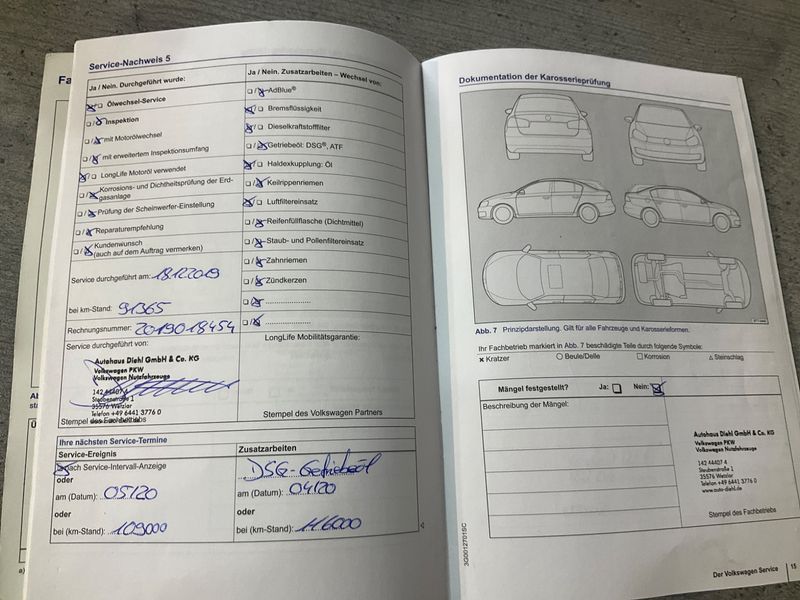 Fa
Service-Nachweis 5
Ja / Nein. Durchgeführt wurde:
Ölwechsel-Service
Inspektion
mit Motorölwechsel
mit erweitertem Inspektionsumfang
LongLife Motoröl verwendet
Korrosions- und Dichtheitsprüfung der Erd-
gasanlage
Prüfung der Scheinwerfer-Einstellung
Reparaturempfang
Kundenwunsch
(auch auf dem Auftrag vermerken)
Service durchgeführt am: 18.12.2019
bei km-Stand: 91365
Rechnungsnummer: 2019018454
Service durchgeführt von:
Autohaus Diehl GmbH & Co. KG
Volkswagen PKW
Volkswagen Nutzfahrzeuge
142 44407 4
Steubenstraße 1
35576 Wetzlar
Telefon +49 6441 3776 0
Stempel des Fachbetriebs
Ja / Nein. Zusatzarbeiten – Wechsel von:
AdBlue®
Bremsflüssigkeit
Dieselkraftstofffilter
Getriebeöl: DSG®, ATF
Haldexkupplung: Öl
Keilrippenriemen
Luftfiltereinsatz
Reifenfüllflasche (Dichtmittel)
Staub- und Pollenfiltereinsatz
Zahnriemen
Zündkerzen
LongLife Mobilitätsgarantie:
Stempel des Volkswagen Partners
Ihre nächsten Service-Termine
Service-Ereignis
nach Service-Intervall-Anzeige
oder
am (Datum): 05/20
oder
bei (km-Stand): 109000
Zusatzarbeiten
DSG-Getriebeöl
am (Datum): 04/20
oder
bei (km-Stand): 116000
Dokumentation der Karosserieprüfung
Abb. 7 Prinzipdarstellung. Gilt für alle Fahrzeuge und Karosserieformen.
Ihr Fachbetrieb markiert in Abb. 7 beschädigte Teile durch folgende Symbole:
× Kratzer ○ Beule/Delle □ Korrosion △ Steinschlag
Mängel festgestellt? Ja: Nein:
Beschreibung der Mängel:
Autohaus Diehl GmbH & Co. KG
Volkswagen PKW
Volkswagen Nutzfahrzeuge
142 44407 4
Steubenstraße 1
35576 Wetzlar
Telefon +49 6441 3776 0
www.auto-diehl.de
Stempel des Fachbetriebs
3G0012701SC
Der Volkswagen Service 15